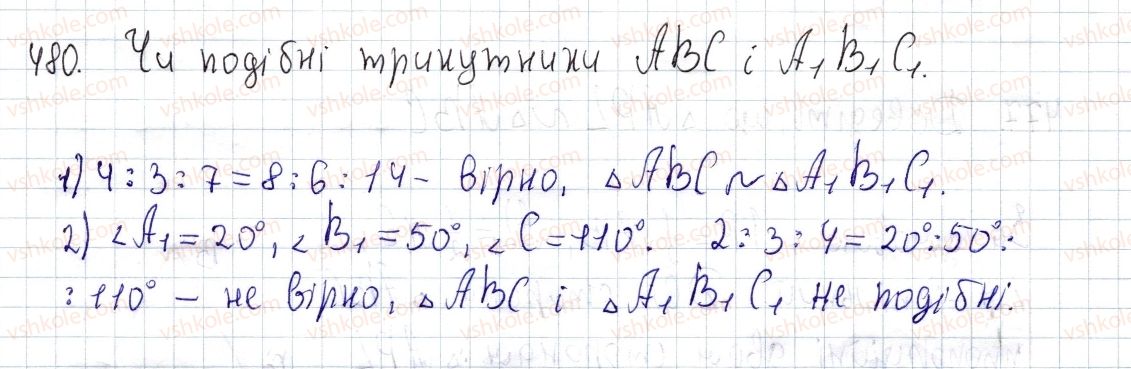 480. Чи подібні трикутники ABC і A₁B₁C₁.
1) 4:3:7=8:6:14 – вірно, △ABC ~ △A₁B₁C₁.
2) ∠A₁=20°, ∠B₁=50°, ∠C=110°. 2:3:4=20°:50°:
:110° – не вірно, △ABC і △A₁B₁C₁ не подібні.